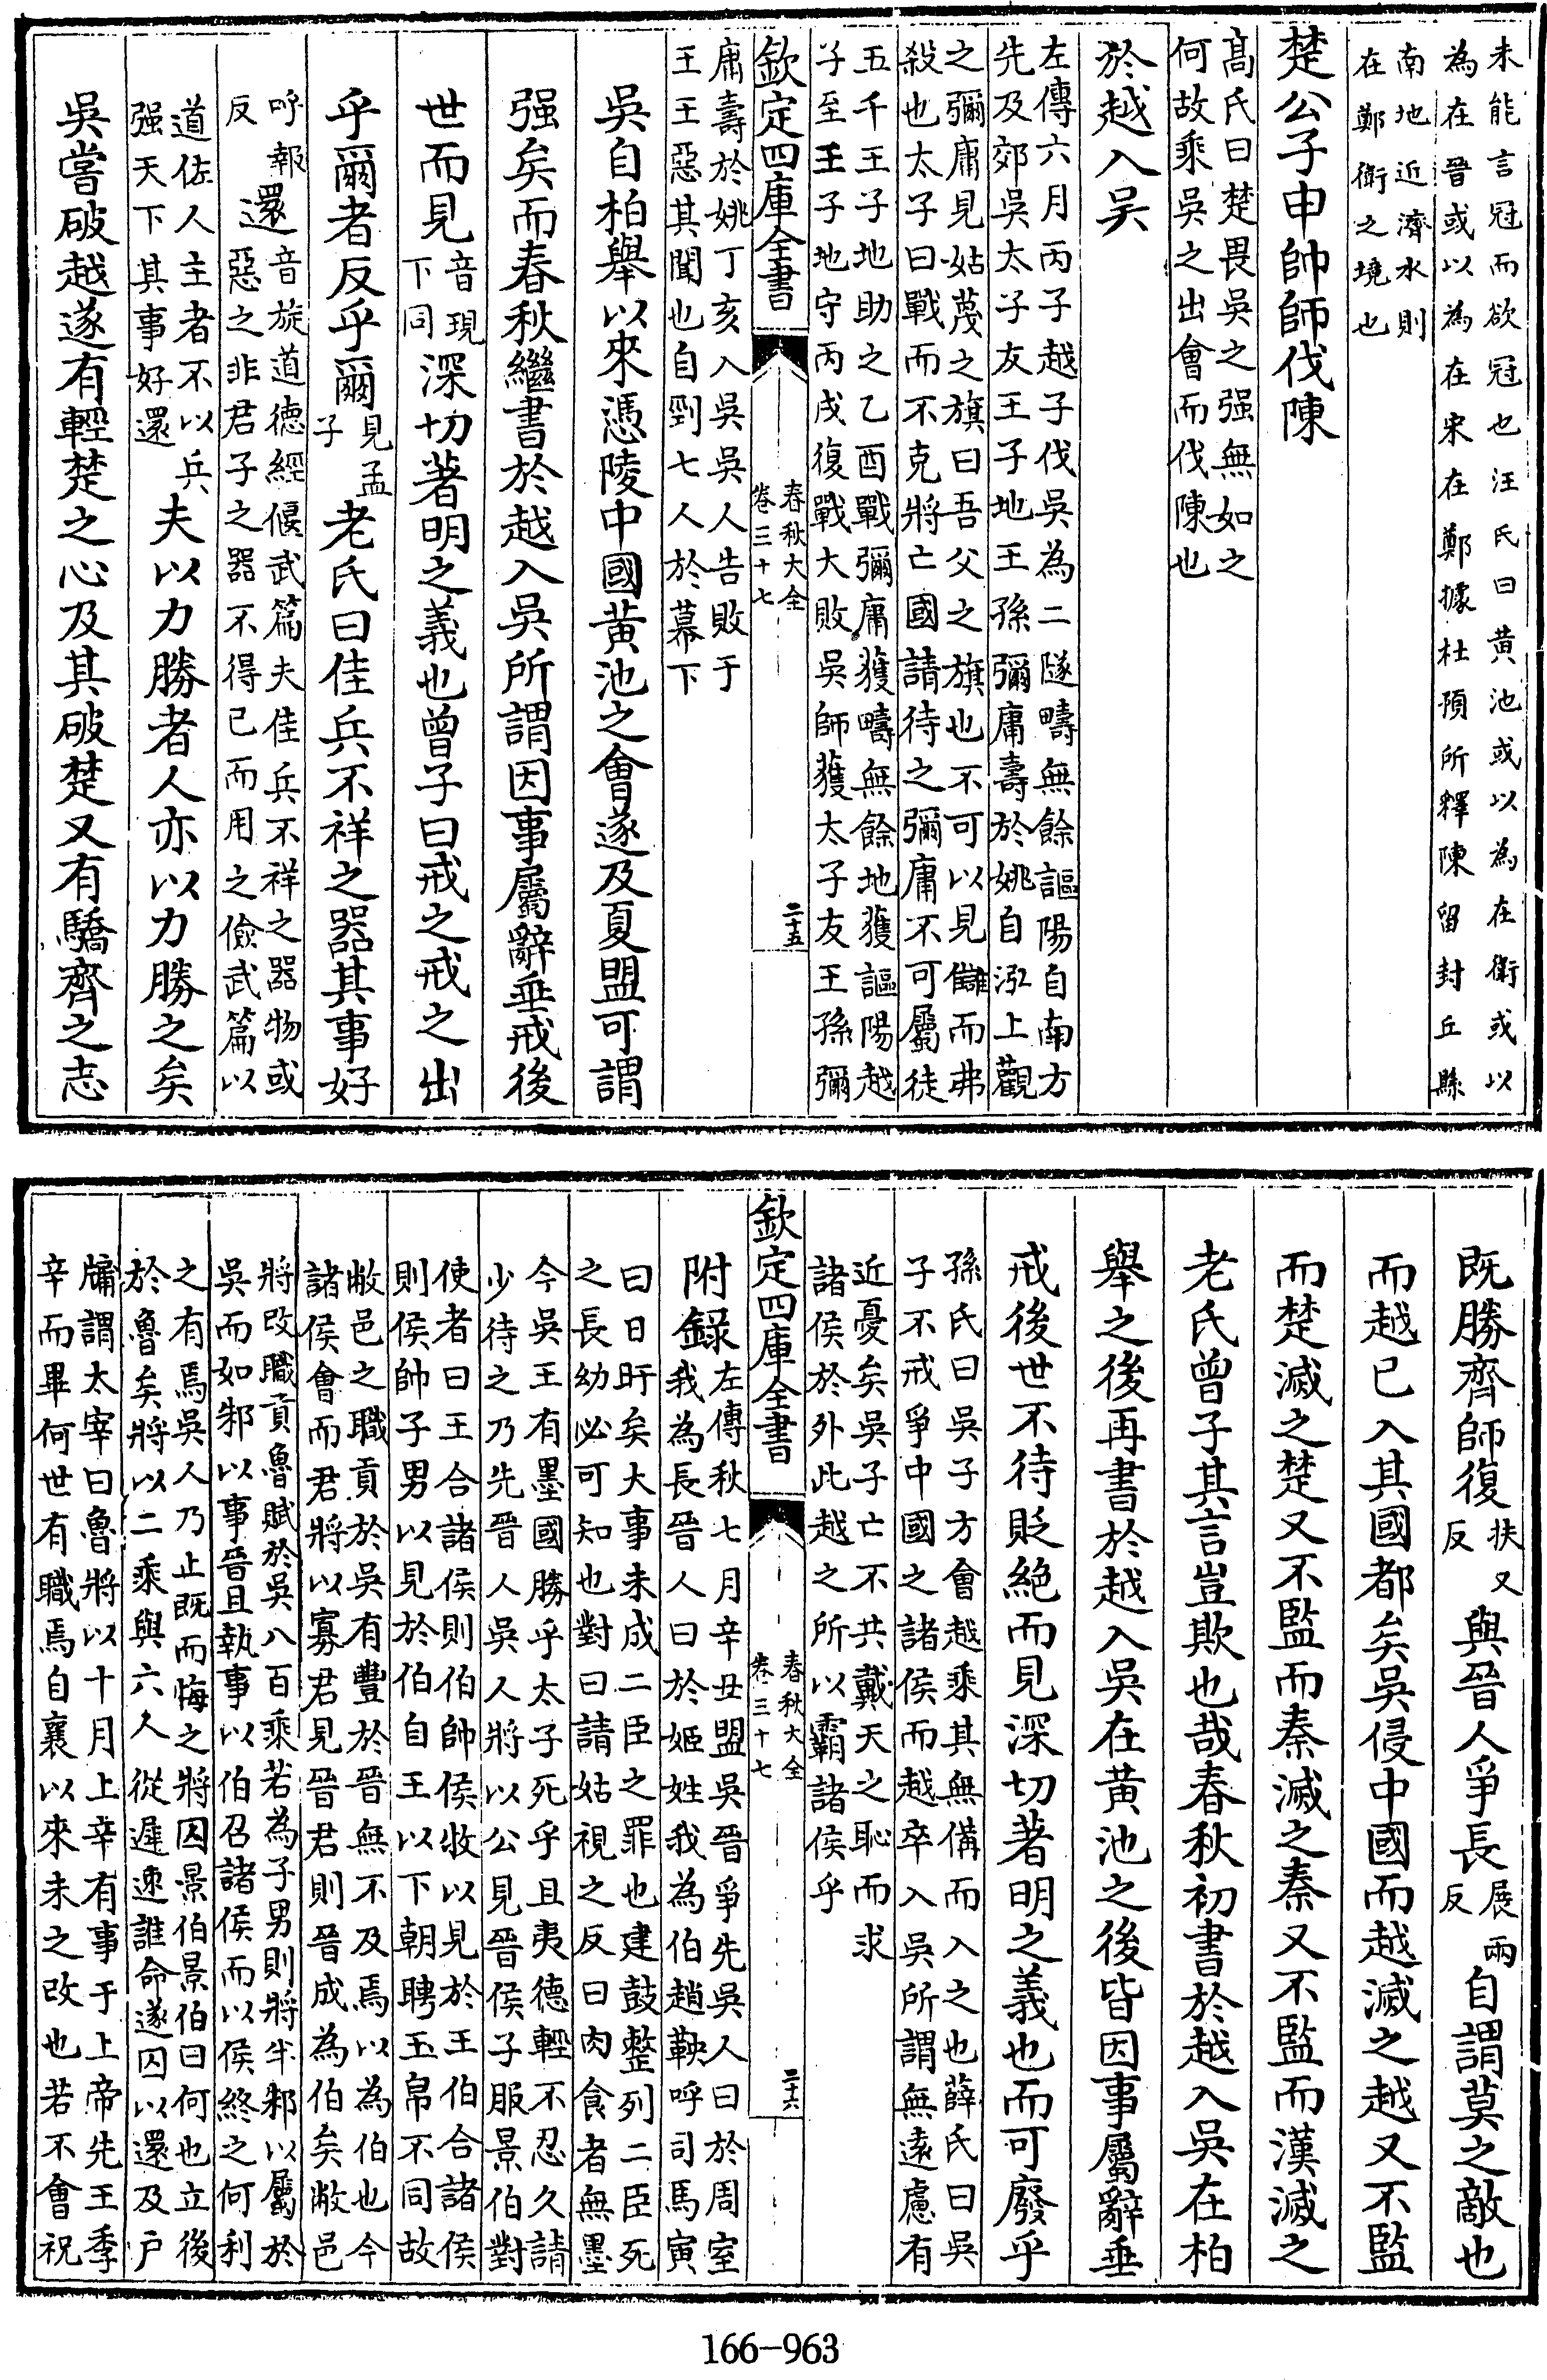 未能言冠而欲冠也汪氏曰黄池或以為在衛或以
為在晉或以為在宋在鄭據杜預所釋陳留封丘縣
南地近濟水則
在鄭衛之境也
楚公子申帥師伐陳
高氏曰楚畏吳之强無如之
何故乘吳之出會而伐陳也
於越入吳
左傳六月丙子越子伐吳為二隧疇無餘謳陽自南方
先及郊吳太子友王子地王孫彌庸壽於姚自泓上觀
之彌庸見姑蔑之旗曰吾父之旗也不可以見讎而弗
殺也太子曰戰而不克將亡國請待之彌庸不可屬徒
五千王子地助之乙酉戰彌庸獲疇無餘地獲謳陽越
子至王子地守丙戌復戰大敗吳師獲太子友王孫彌
欽定四庫全書
春秋大全
卷三十七
二十五
庸壽於姚丁亥入吳吳人告敗于
王王惡其聞也自剄七人於幕下
吳自柏舉以來憑陵中國黄池之會遂及夏盟可謂
强矣而春秋繼書於越入吳所謂因事屬辭垂戒後
世而見
音現
下同
深切著明之義也曾子曰戒之戒之出
乎爾者反乎爾
見孟
子
老氏曰佳兵不祥之器其事好
呼報
反
還
音旋道德經偃武篇夫佳兵不祥之器物或
惡之非君子之器不得已而用之儉武篇以
道佐人主者不以兵
强天下其事好還
夫以力勝者人亦以力勝之矣
吳嘗破越遂有輕楚之心及其破楚又有驕齊之志
既勝齊師復
扶又
反
與晉人爭長
展兩
反
自謂莫之敵也
而越已入其國都矣吳侵中國而越滅之越又不監
而楚滅之楚又不監而秦滅之秦又不監而漢滅之
老氏曾子其言豈欺也哉春秋初書於越入吳在柏
舉之後再書於越入吳在黄池之後皆因事屬辭垂
戒後世不待貶絶而見深切著明之義也而可廢乎
孫氏曰吳子方會越乘其無備而入之也薛氏曰吳
子不戒爭中國之諸侯而越卒入吳所謂無遠慮有
近憂矣吳子亡不共戴天之恥而求
諸侯於外此越之所以霸諸侯乎
欽定四庫全書
春秋大全
卷三十七
二十六
附錄
左傳秋七月辛丑盟吳晉爭先吳人曰於周室
我為長晉人曰於姬姓我為伯趙鞅呼司馬寅
曰日旰矣大事未成二臣之罪也建鼓整列二臣死
之長幼必可知也對曰請姑視之反曰肉食者無墨
今吳王有墨國勝乎太子死乎且夷德輕不忍久請
少待之乃先晉人吳人將以公見晉侯子服景伯對
使者曰王合諸侯則伯帥侯牧以見於王伯合諸侯
則侯帥子男以見於伯自王以下朝聘玉帛不同故
敝邑之職貢於吳有豐於晉無不及焉以為伯也今
諸侯會而君將以寡君見晉君則晉成為伯矣敝邑
將改職貢魯賦於吳八百乘若為子男則將半邾以屬於
吳而如邾以事晉且執事以伯召諸侯而以侯終之何利
之有焉吳人乃止既而悔之將囚景伯景伯曰何也立後
於魯矣將以二乘與六人從遲速誰命遂囚以還及戶
牖謂太宰曰魯將以十月上辛有事于上帝先王季
辛而畢何世有職焉自襄以來未之改也若不會祝
166-963